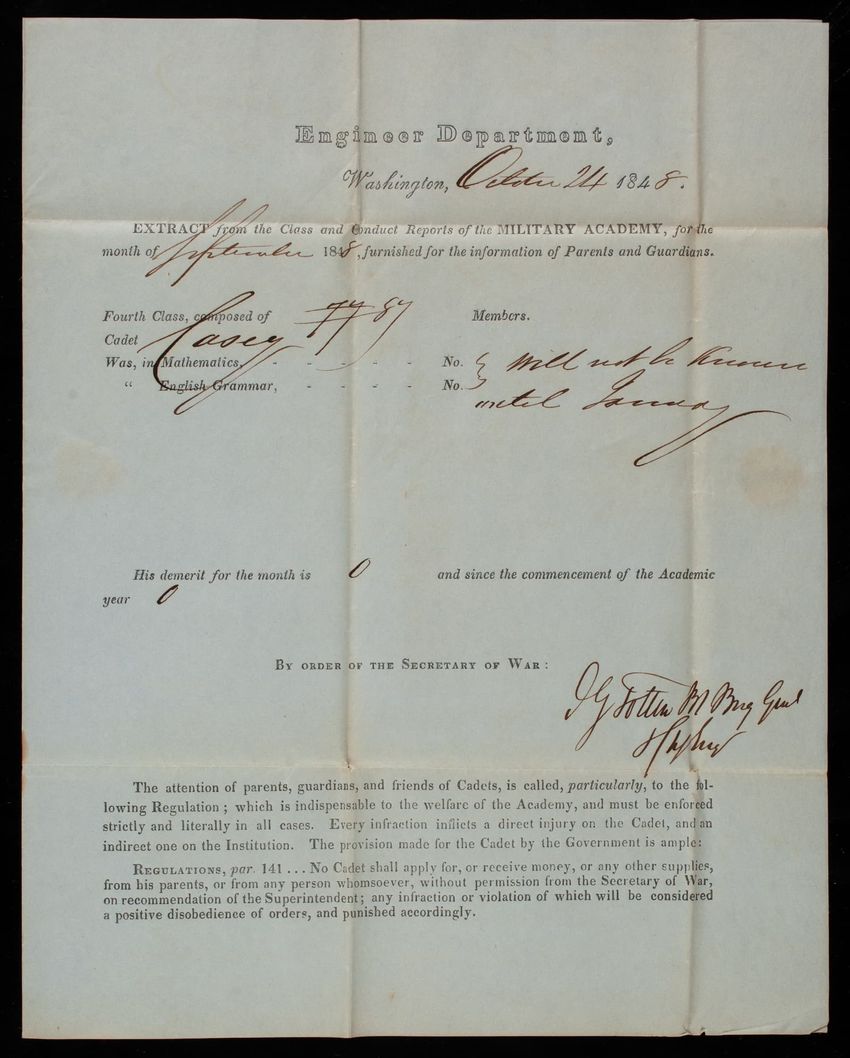 Engineer Department,
Washington, October 24 1848.
EXTRACT from the Class and Conduct Reports of the MILITARY ACADEMY, for the
month of September 1848, furnished for the information of Parents and Guardians.
Fourth Class, composed of 87 Members.
Cadet Casey
Was, in Mathematics, - - - - - No. } Will not be Known
“ English Grammar, - - - - No. } until January
His demerit for the month is 0 and since the commencement of the Academic
year 0
BY ORDER OF THE SECRETARY OF WAR:
J G Totten Bt Brig Genl
The attention of parents, guardians, and friends of Cadets, is called, particularly, to the fol-
lowing Regulation; which is indispensable to the welfare of the Academy, and must be enforced
strictly and literally in all cases. Every infraction inflicts a direct injury on the Cadet, and an
indirect one on the Institution. The provision made for the Cadet by the Government is ample:
REGULATIONS, par. 141 ... No Cadet shall apply for, or receive money, or any other supplies,
from his parents, or from any person whomsoever, without permission from the Secretary of War,
on recommendation of the Superintendent; any infraction or violation of which will be considered
a positive disobedience of orders, and punished accordingly.